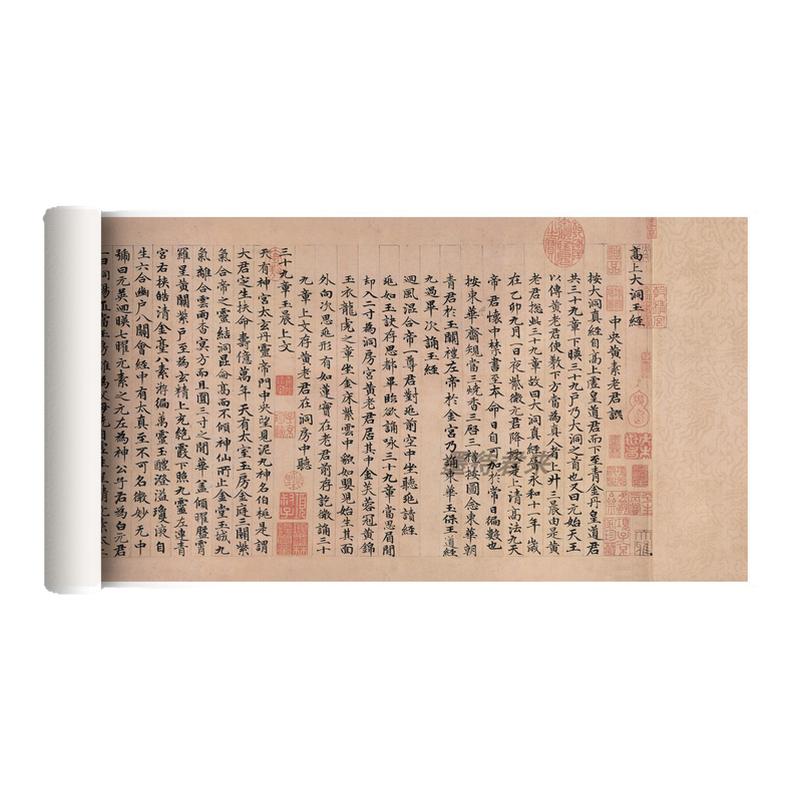 高上大洞玉經
中央黃素老君譔
按大洞真經自高上虛皇道君而下至青金丹皇道君
共三十九章下暎三十九戶乃大洞之首也又曰元始天王
以傳黃老君使教下方當為真人者上升三晨由是黃
老君摠此三十九章故曰大洞真經晉永和十一年歲
在乙卯九月一日夜紫微元君降授於上清高法九天
帝君懷中林書至本命日自可加於常日徧數也
按東華齋規當三燒香三啓三禮按圖念東華朝
青君於玉闕禮左帝於金宮乃誦東華玉保王道經
九過畢次誦玉經
迴風混合帝一尊君對兆前空中坐聽兆讀經
兆如玉訣存思都畢臨欲誦詠三十九章當思眉間
却入三寸為洞房宮黃老君居其中金芙蓉冠黃錦
玉衣龍虎之章坐金床紫雲中貌如嬰兒始生其面
外向次思兆形有如蓮寶在老君前存訖微誦三十
九章上文存黃老君在洞房中聽
三十九章玉晨上文
天有神宮太玄丹靈帝門中央望見泥九神名伯桓是謂
大君定生扶命壽億萬年天有太室玉房金庭三關紫
氣合帝之靈結洞崑侖高而不傾神仙所止金堂玉城九
氣離合雲雨杳冥方而且圓三寸之間華蓋傾曜騰霄
羅星黃闕紫戶至為玄精上光絕霞下照九靈左連青
宮右挾皓清金臺八素游徧萬靈玉醴澄溢瓊液自
生六合幽戶八關會經中有太真至不可名微妙无中
號曰元英迴暎七曜元素之元左為神公子右為白元君